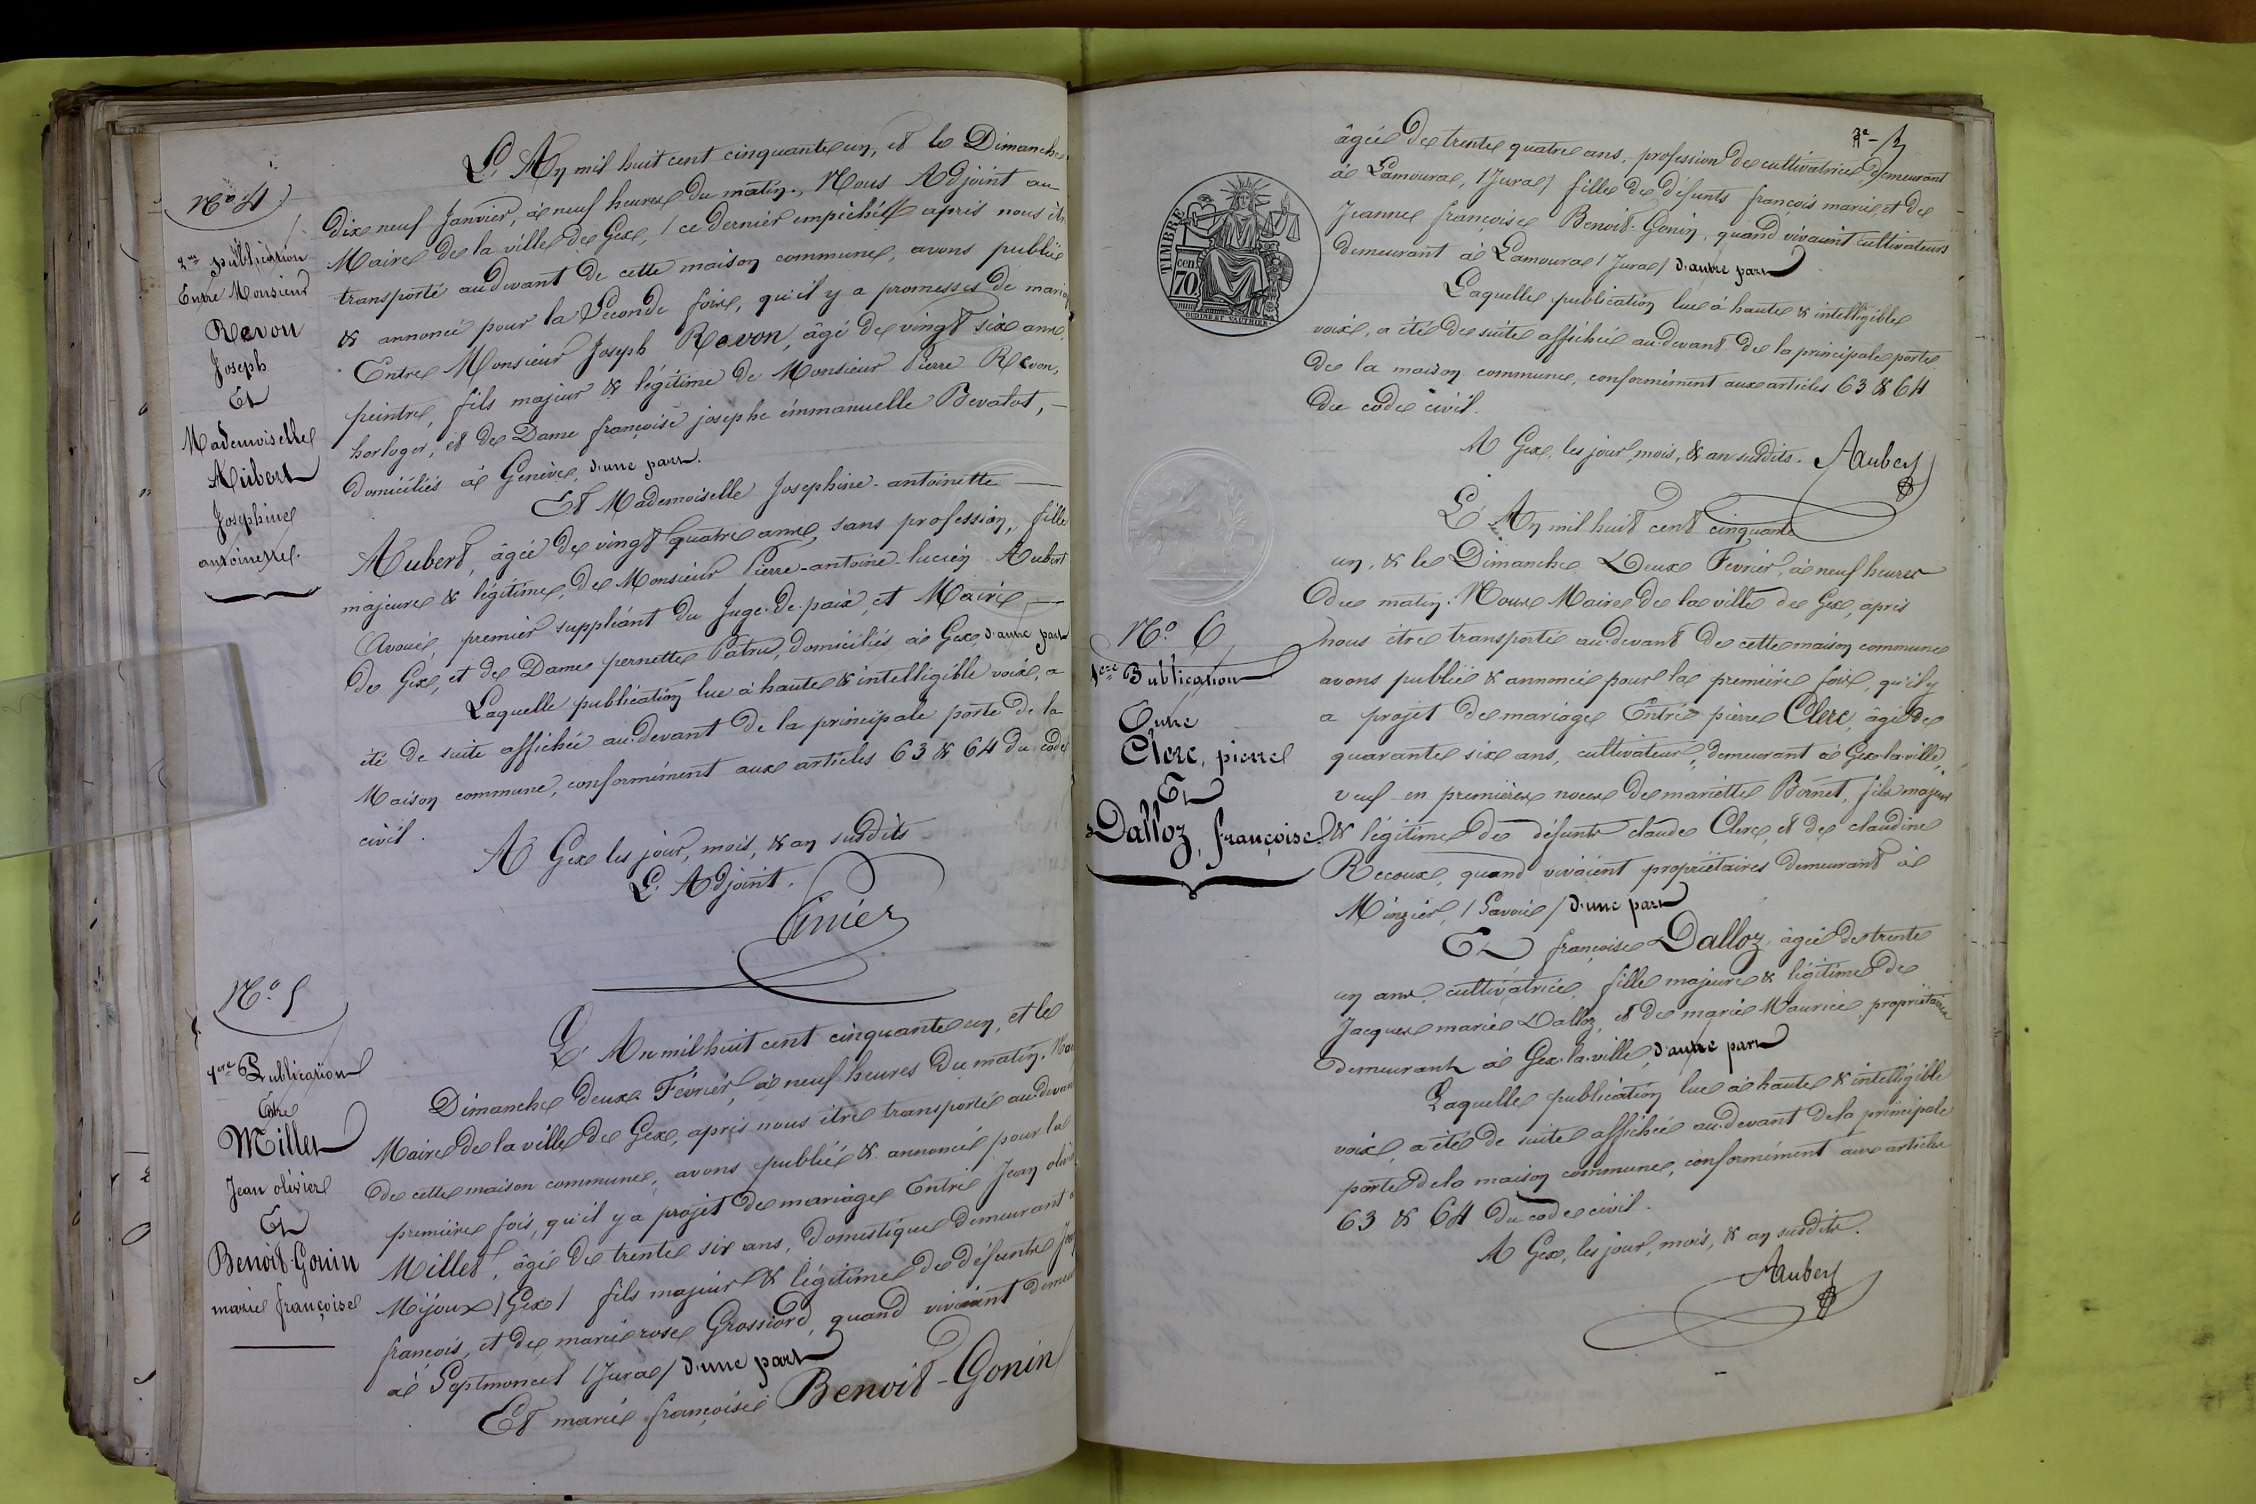 N.º 4
2.me publication
Entre Monsieur
Revon
Joseph
Et
Mademoiselle
Aubert
Joséphine
antoinette.
L'An mil huit cent cinquante un, et le Dimanche
dix neuf Janvier, à neuf heures du matin, Nous Adjoint au
Maire de la ville de Gex, / ce dernier empêché / après nous être
transporté au devant de cette maison commune, avons publié
& annoncé pour la Seconde fois, qu'il y a promesses de mariage
Entre Monsieur Joseph Revon, âgé de vingt six ans,
peintre, fils majeur & légitime de Monsieur Pierre Revon,
horloger, et de Dame françoise josephe émmanuelle Bevalot,
domiciliés à Genève, d'une part.
Et Mademoiselle Josephine-antoinette
Aubert, âgée de vingt quatre ans, sans profession, fille
majeure & légitime, de Monsieur Pierre-antoine-lucien Aubert
Avoué, premier suppléant du Juge-de-paix, et Maire
de Gex, et de Dame pernette Patru, domiciliés à Gex, d'autre part
Laquelle publication lue à haute & intelligible voix, a
été de suite affichée au-devant de la principale porte de la
Maison commune, conformément aux articles 63 & 64 du code
civil.
A Gex les jour, mois, & an susdits
L'Adjoint.
N.º 5
1ere Publication
Entre
Millet
Jean olivier
Et
Benoit-Gonin
marie françoise
L'An mil huit cent cinquante un, et le
Dimanche deux Février, à neuf heures du matin. Nous
Maire de la ville de Gex, après nous être transporté au-devant
de cette maison commune, avons publié & annoncé pour la
première fois, qu'il y a projet de mariage Entre Jean olivier
Millet, âgé de trente six ans, domestique demeurant à
Mijoux / Gex / fils majeur & légitime de défunts Jean
francois, et de marie rose Grossiord, quand vivaient demeurant
à Septmoncel / Jura / d'une part
Et marie françoise Benoit-Gonin
âgée de trente quatre ans, profession de cultivatrice, demeurant
à Lamoura, / Jura / fille de défunts françois marie, et de
Jeanne françoise Benoit-Gonin, quand vivaient cultivateurs
demeurant à Lamoura / Jura / d'autre part
Laquelle publication lue à haute & intelligible
voix, a été de suite affichée au-devant de la principale porte
de la maison commune, conformément aux articles 63 & 64
du code civil.
A Gex, les jour, mois, & an susdits. Aubert
TIMBRE
70 cen
OUDINÉ ET VAUTHIER
N.º 6
1ere Publication
Entre
Clerc, pierre
Et
Dalloz, françoise
L'An mil huit cent cinquante
un, & le Dimanche Deux Février, à neuf heures
du matin. Nous Maire de la ville de Gex, après
nous être transporté au-devant de cette maison commune
avons publié & annoncé pour la première fois, qu'il y
a projet de mariage Entre pierre Clerc, âgé de
quarante six ans, cultivateur, demeurant à Gex-la-ville,
veuf en premières noces de mariette Bornet, fils majeur
& légitime de défunts claude Clerc, et de claudine
Recoux, quand vivaient propriétaires demeurant à
Minzier, / Savoie / d'une part
Et françoise Dalloz, âgée de trente
un ans, cultivatrice, fille majeure & légitime de
Jacques marie Dalloz, et de marie Maurice, propriétaires
demeurant à Gex-la-ville, d'autre part
Laquelle publication lue à haute & intelligible
voix, a été de suite affichée au-devant de la principale
porte de la maison commune, conformément aux articles
63 & 64 du code civil.
A Gex, les jour, mois, & an susdits.
Aubert